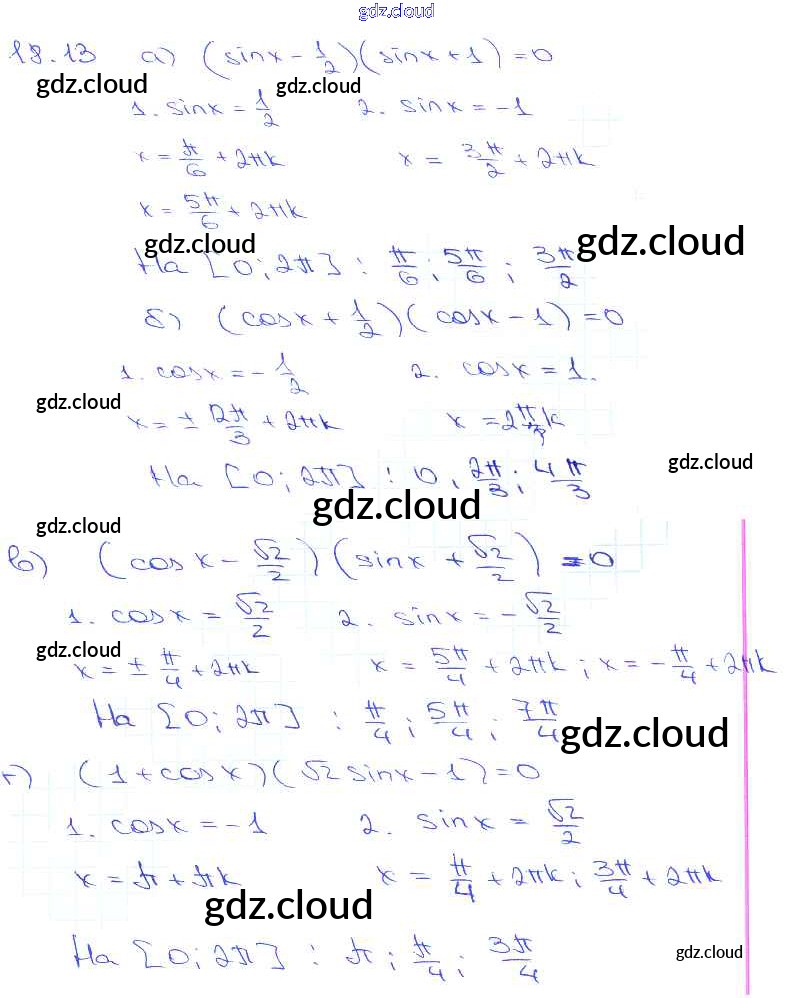 gdz.cloud
18.13 а) (sinx - 1/2)(sinx + 1) = 0
gdz.cloud gdz.cloud
1. sinx = 1/2 2. sinx = -1
x = π/6 + 2πk x = 3π/2 + 2πk
x = 5π/6 + 2πk
gdz.cloud gdz.cloud
На [0; 2π] : π/6; 5π/6; 3π/2
б) (cosx + 1/2)(cosx - 1) = 0
1. cosx = -1/2 2. cosx = 1.
gdz.cloud
x = ± 2π/3 + 2πk x = 2πk
gdz.cloud
На [0; 2π] : 0, 2π/3; 4π/3
gdz.cloud
gdz.cloud
в) (cosx - √2/2)(sinx + √2/2) = 0
1. cosx = √2/2 2. sinx = -√2/2
gdz.cloud
x = ± π/4 + 2πk x = 5π/4 + 2πk; x = -π/4 + 2πk
На [0; 2π] : π/4; 5π/4; 7π/4
gdz.cloud
г) (1 + cosx)(√2 sinx - 1) = 0
1. cosx = -1 2. sinx = √2/2
x = π + πk x = π/4 + 2πk; 3π/4 + 2πk
gdz.cloud
На [0; 2π] : π; π/4; 3π/4
gdz.cloud